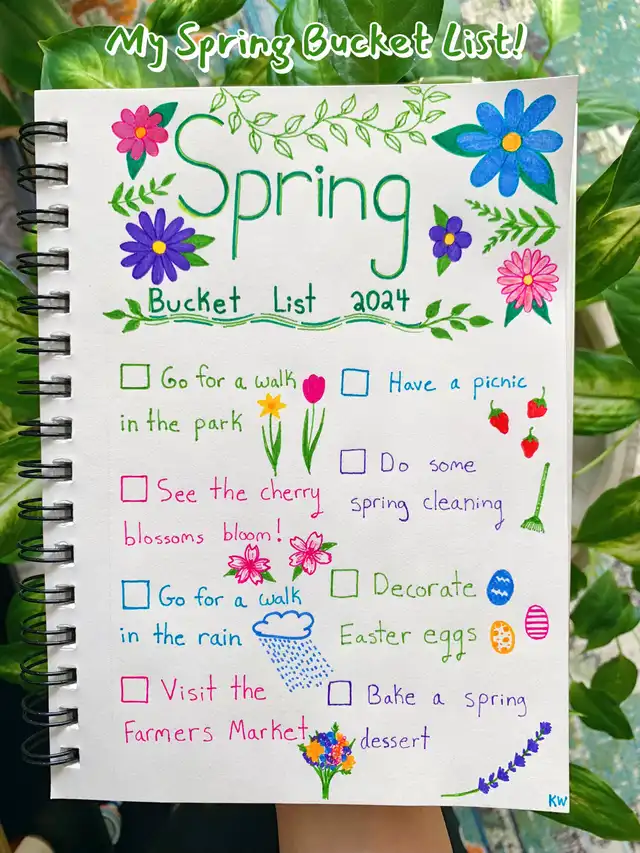 My Spring Bucket List!
Spring
Bucket List 2024
Go for a walk
in the park
See the cherry
blossoms bloom!
Go for a walk
in the rain
Visit the
Farmers Market
Have a picnic
Do some
spring cleaning
Decorate
Easter eggs
Bake a spring
dessert
KW